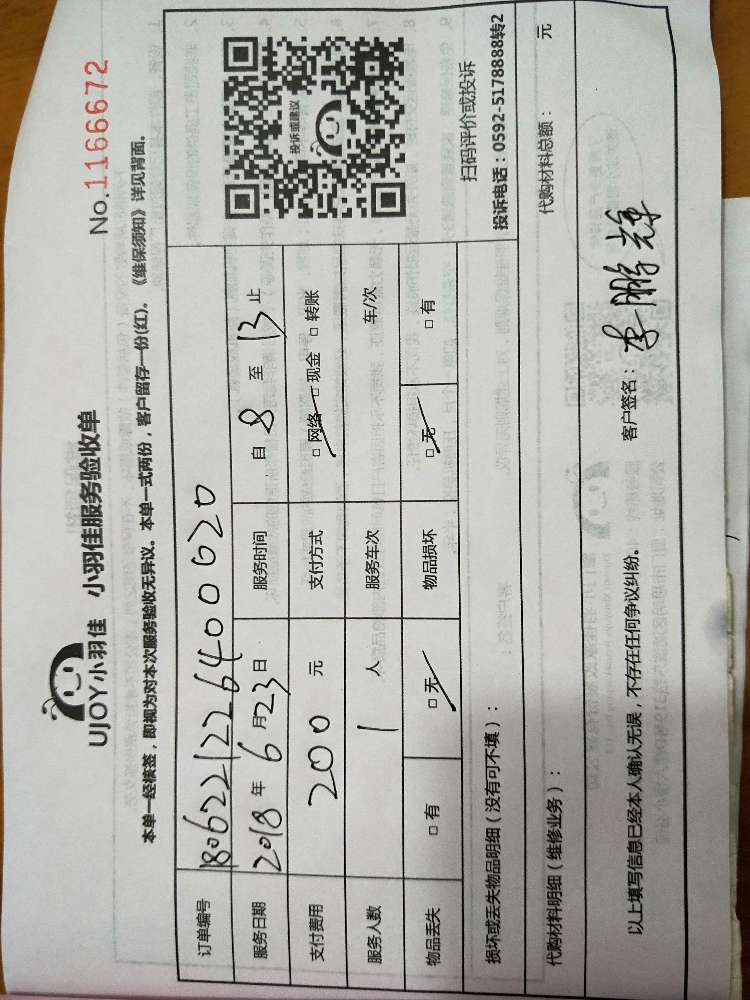 UJOY小羽佳 小羽佳服务验收单
No.1166672
本单一经核签，即视为对本次服务验收无异议。本单一式两份，客户留存一份(红)。《维保须知》详见背面。
订单编号 1806221226400620
服务日期 2018年6月23日 服务时间 自8至13止
支付费用 200元 支付方式 □网络 □现金 □转账
服务人数 1人 服务车次 车/次
物品丢失 □有 □无 物品损坏 □无 □有
投诉或建议
扫码评价或投诉
投诉电话：0592-5178888转2
损坏或丢失物品明细（没有可不填）：
代购材料明细（维修业务）： 代购材料总额： 元
以上填写信息已经本人确认无误，不存在任何争议纠纷。 客户签名：李鹏辉